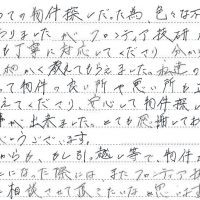 ての物件探しだった為、色々な不
ありましたが、フロンティア技研
も丁寧に対応してくださり、分か
細かく教えてもらえました。
っての物件の良い所や悪い所も
えてくださり、安心して物件探し
事が出来ました。とても感謝してお
とうございます。
からも、もし引っ越し等で、物件
になった際には、またフロンティア技
に相談させて頂きたいなと思います